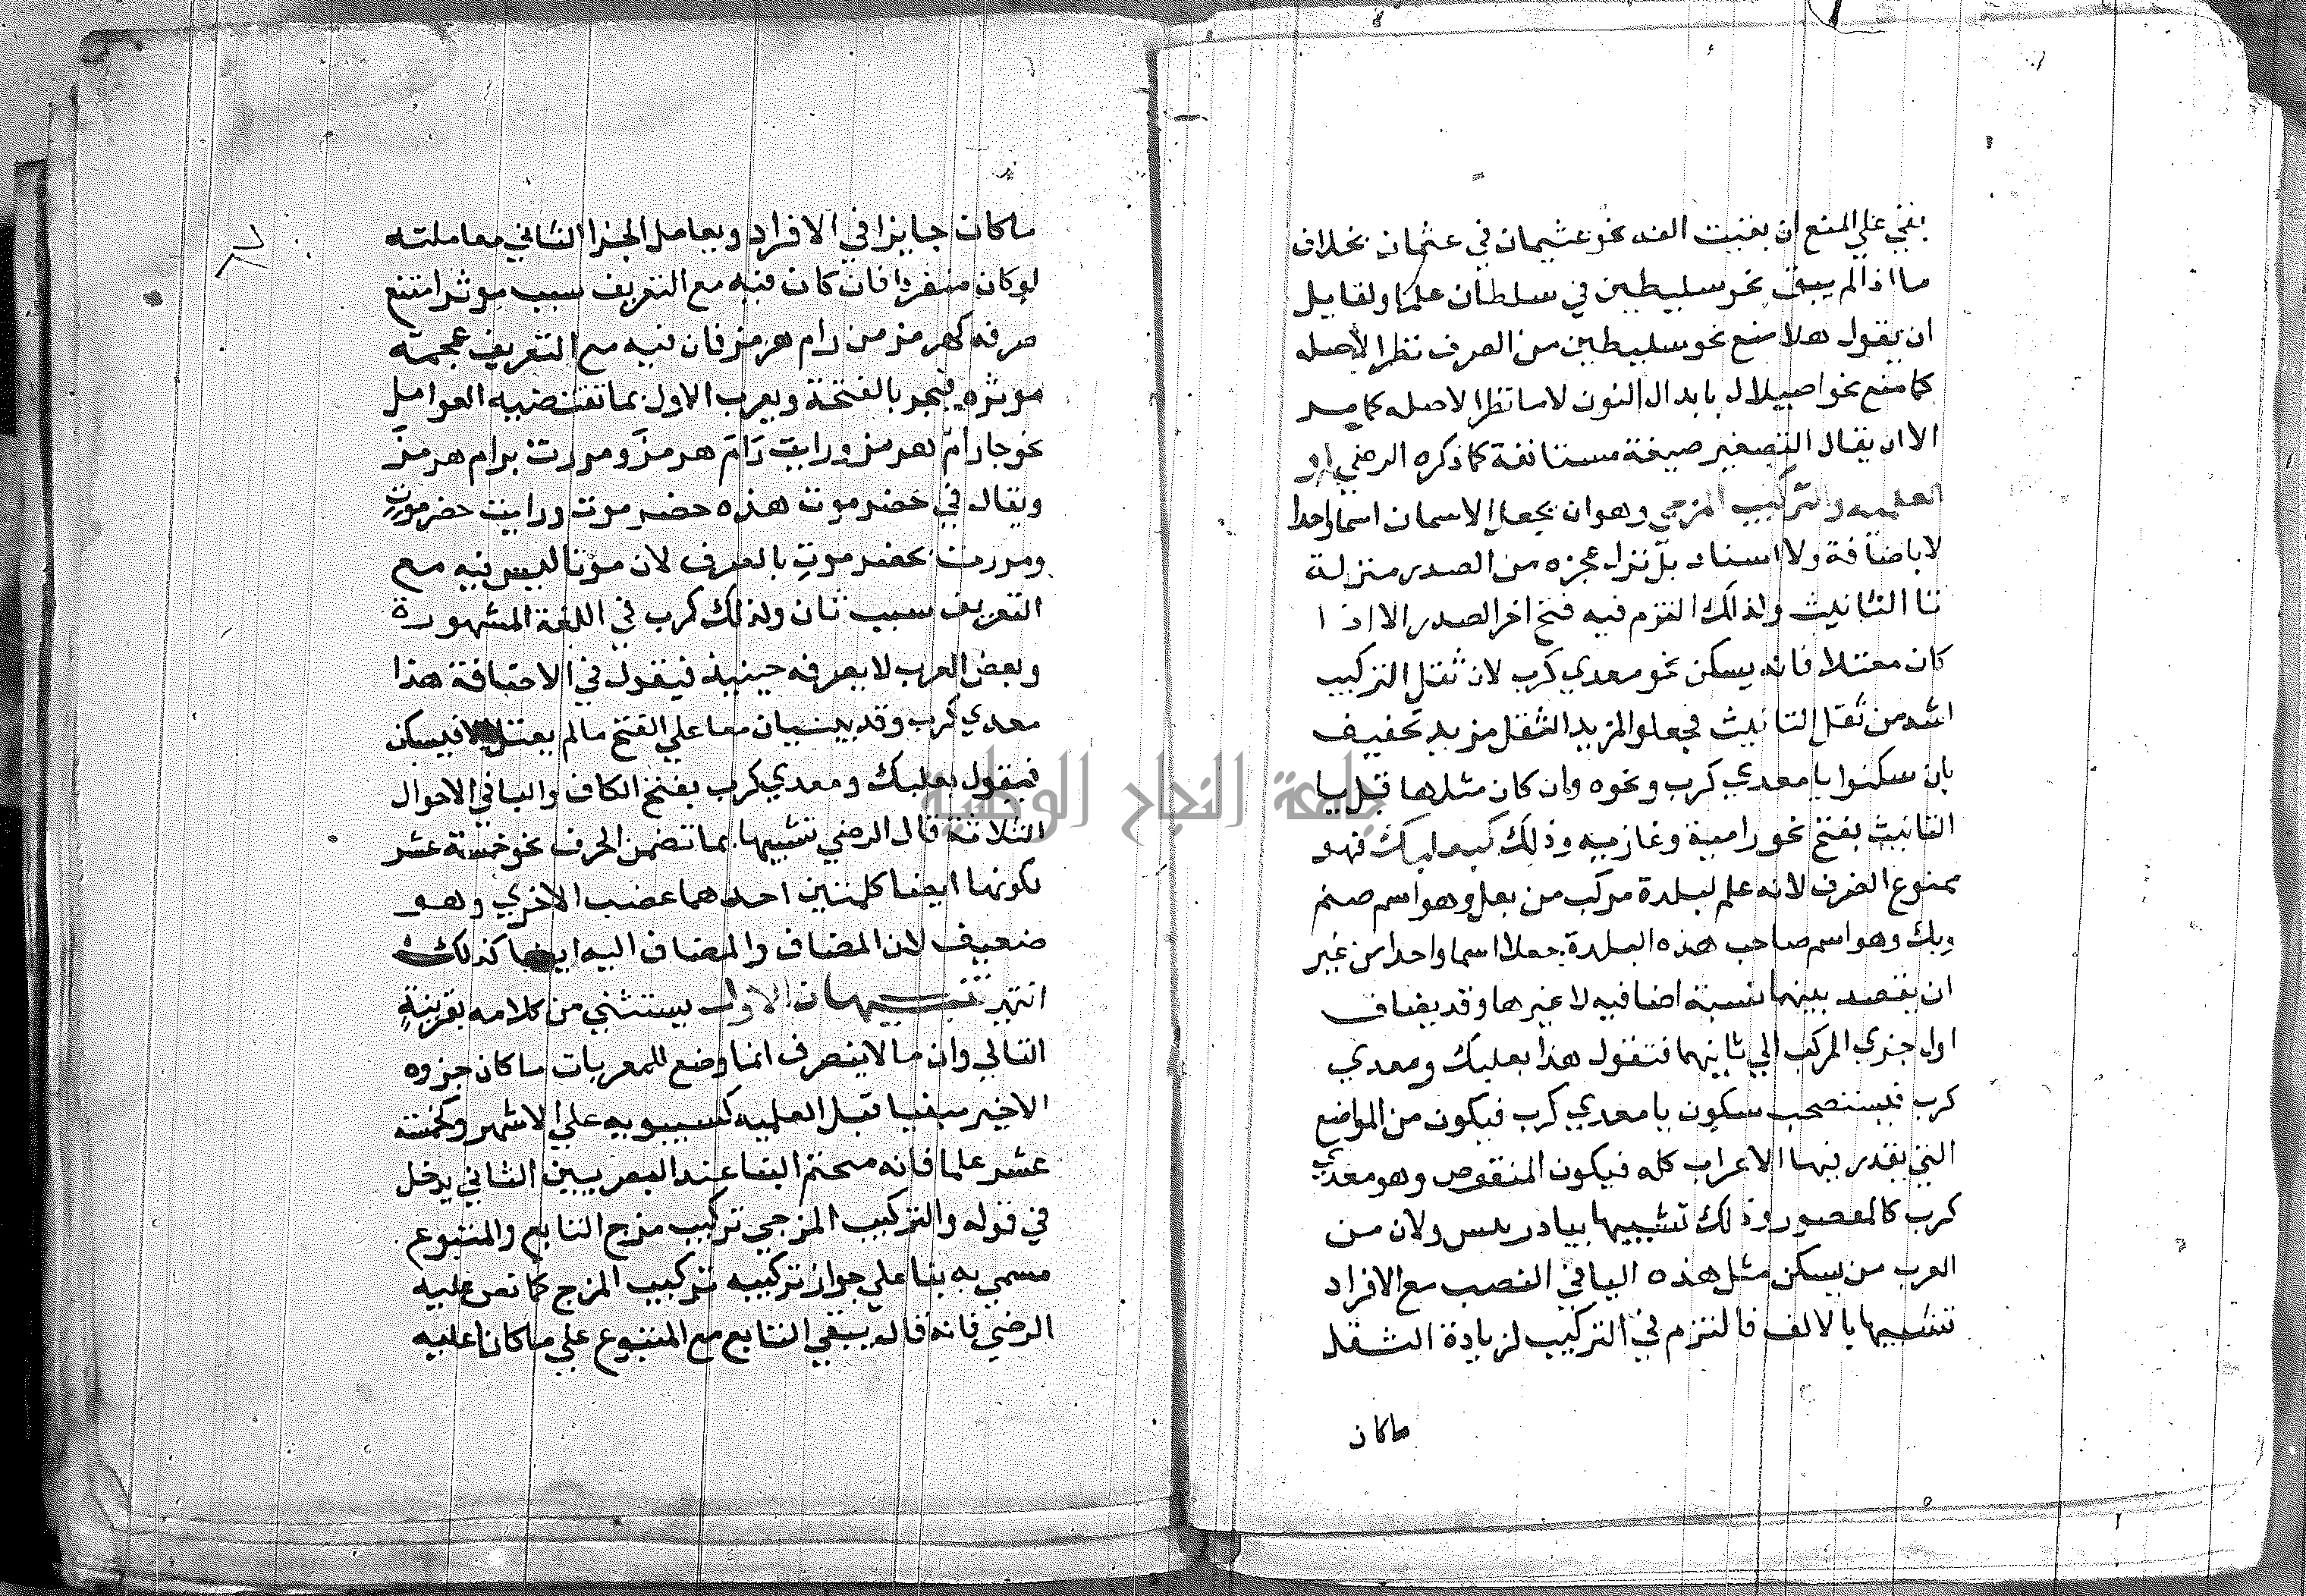 بقي علي المنع ان بقيت الفه نحو عثيمان في عثمان بخلاف
ما اذا لم يبق نحو سليطين في سلطان علما ولقايل
ان يقول هلا منع نحو سليطين من الصرف نظرا لاصله
كما منع نحو اصيلال بابدال النون لاما نظرا لاصله كما مر
الا ان يقال التصغير صيغة مستانفة كما ذكره الرضي او
العلميه والتركيب المزجي وهو ان يجعل الاسمان اسما واحدا
لا باضافة ولا اسناد بل نزل عجزه من الصدر منزلة
تا التانيث ولذلك التزم فيه فتح اخر الصدر الا اذا
كان معتلا فانه يسكن نحو معدي كرب لان ثقل التركيب
اشد من ثقل التانيث فجعلوا لمزيد الثقل مزيد تخفيف
بان سكنوا يا معدي كرب ونحوه وان كان مثلها قبل يا
التانيث بفتح نحو رامية وغازيه وذلك كبعلبك فهو
ممنوع الصرف لانه علم لبلدة مركب من بعل وهو اسم صنم
وبك وهو اسم صاحب هذه البلدة جعلا اسما واحدا من غير
ان يقصد بينهما نسبة اضافيه لا غيرها وقد يضاف
اول جزي المركب الي ثانيهما فتقول هذا بعلبك ومعدي
كرب فيستصحب سكون يا معدي كرب فيكون من المواضع
التي يقدر فيها الاعراب كله فيكون المنقوص وهو معدي
كرب كالمقصور وذلك تشبيها بيا دردبيس ولان من
العرب من يسكن مثل هذه اليا في النصب مع الافراد
تشبيها بالالف فالتزم في التركيب لزيادة الثقل
ماكان
ماكان جايزا في الافراد ويعامل الجزا الثاني معاملته
لو كان منفردا فان كان فيه مع التعريف سبب موثر امتنع
صرفه كهرمز من رام هرمز فان فيه مع التعريف عجمة
موثره فيجر بالفتحة ويعرب الاول بما تقتضيه العوامل
نحو جا رام هرمز ورايت رَامَ هرمزَ ومررت برام هرمزَ
ويقال في حضرموت هذه حضرموت ورايت حضرموت
ومررت بحضرموتٍ بالصرف لان موتا ليس فيه مع
التعريف سبب ثان ولذلك كرب في اللغة المشهورة
وبعض العرب لا يصرفه حينيذ فيقول في الاضافة هذا
معدي كرب وقد يبنيان معا علي الفتح ما لم يعتل الا فيسكن
فيقول بعلبك ومعدي كرب بفتح الكاف والبا في الاحوال
الثلاثة قال الرضي تشبيها بما تضمن الحرف نحو خمسة عشر
لكونها ايضا كلمتين احداهما عضب الاخري وهو
ضعيف لان المضاف والمضاف اليه ايضا كذلك
انتهي تنبيهات الاول يستثني من كلامه بقرينةٍ
التالي وان ما لا ينصرف انما وضع للمعربات ماكان جزوه
الاخير مبنيا قبل العلميه كسيبويه علي الاشهر وكخمسة
عشر علما فانه متحتم البنا عند البصريين الثاني يدخل
في قوله والتركيب المزجي تركيب مزج التابع والمتبوع
مسمي به بنا علي جواز تركيبه تركيب المزج كما نص عليه
الرضي فانه قال يبقي التابع مع المتبوع علي ما كانا عليه
جامعة النجاح الوطنية